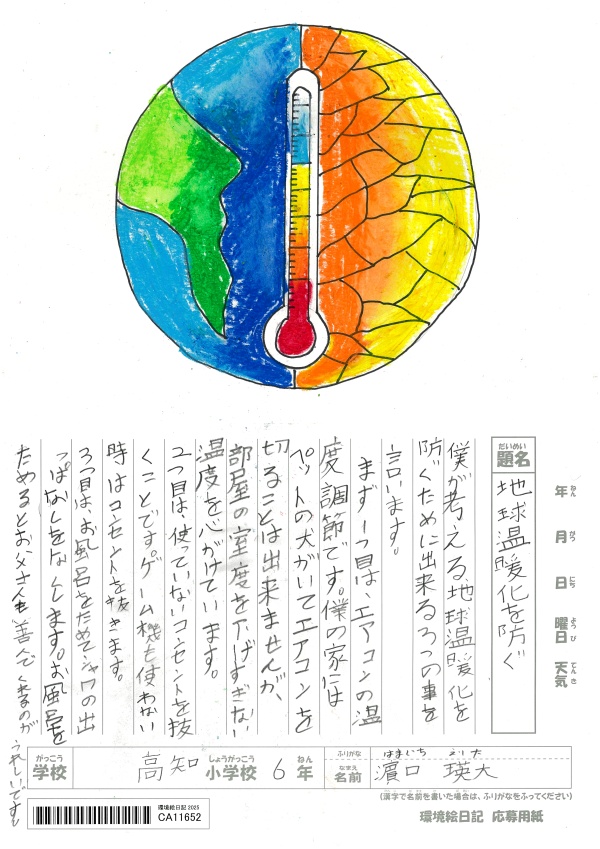 だいめい
題名
地球温暖化を防ぐ
年 ねん
月 がつ
日 にち
曜日 ようび
天気 てんき
僕が考える、地球温暖化を
防ぐために出来る3つの事を
言います。
まず1つ目は、エアコンの温
度調節です。僕の家には
ペットの犬がいてエアコンを
切ることは出来ませんが、
部屋の室度を下げすぎない
温度を心がけています。
2つ目は、使っていないコンセントを抜
くことです。ゲーム機も使わない
時はコンセントを抜きます。
3つ目は、お風呂をためてシャワの出
っぱなしをなくします。お風呂を
ためるとお父さんも喜んでくれるのが
うれしいです。
がっこう
学校
高知
しょうがっこう
小学校
6
ねん
年
ふりがな
はまぐち えいた
なまえ
名前
濵口 瑛大
(漢字で名前を書いた場合は、ふりがなをふってください)
環境絵日記 2025
CA11652
環境絵日記 応募用紙